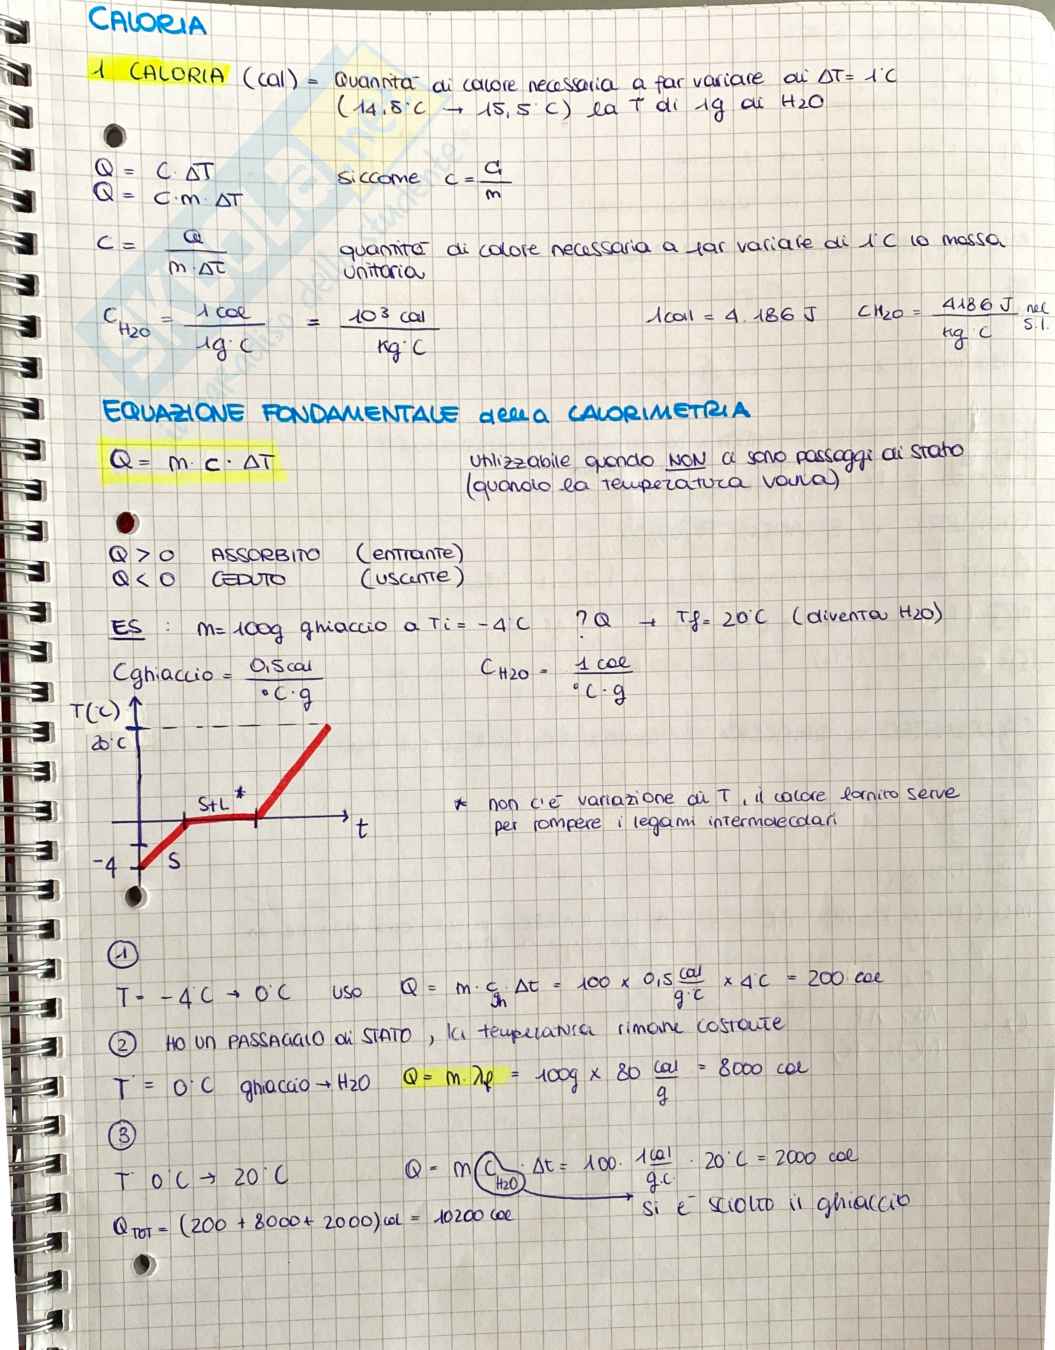 CALORIA
1 CALORIA (cal) = Quantità di calore necessaria a far variare di ΔT = 1°C
(14,5°C → 15,5°C) la T di 1g di H2O
Q = C · ΔT
siccome c = C/m
Q = c · m · ΔT
c = Q/(m · Δt) quantità di calore necessaria a far variare di 1°C la massa
unitaria
C H2O = 1 cal/(1g °C) = 10³ cal/(Kg °C) 1 cal = 4.186 J CH2O = 4186 J/(Kg °C) nel S.I.
EQUAZIONE FONDAMENTALE della CALORIMETRIA
Q = m · c · ΔT utilizzabile quando NON ci sono passaggi di stato
(quando la temperatura varia)
Q > 0 ASSORBITO (entrante)
Q < 0 CEDUTO (uscente)
ES : m = 100g ghiaccio a Ti = -4°C ? Q → Tf = 20°C (diventa H2O)
Cghiaccio = 0,5 cal/(°C · g) CH2O = 1 cal/(°C · g)
T(°C)
20°C
S+L *
t
-4
S
* non c'è variazione di T, il calore fornito serve
per rompere i legami intermolecolari
1
T = -4°C → 0°C uso Q = m · c gh · Δt = 100 × 0,5 cal/(g °C) × 4°C = 200 cal
2 HO UN PASSAGGIO di STATO, la temperatura rimane costante
T = 0°C ghiaccio → H2O Q = m · λf = 100g × 80 cal/g = 8000 cal
3
T 0°C → 20°C Q = m C H2O · Δt = 100 · 1 cal/(g.c) · 20°C = 2000 cal
si è sciolto il ghiaccio
QTOT = (200 + 8000 + 2000) cal = 10200 cal